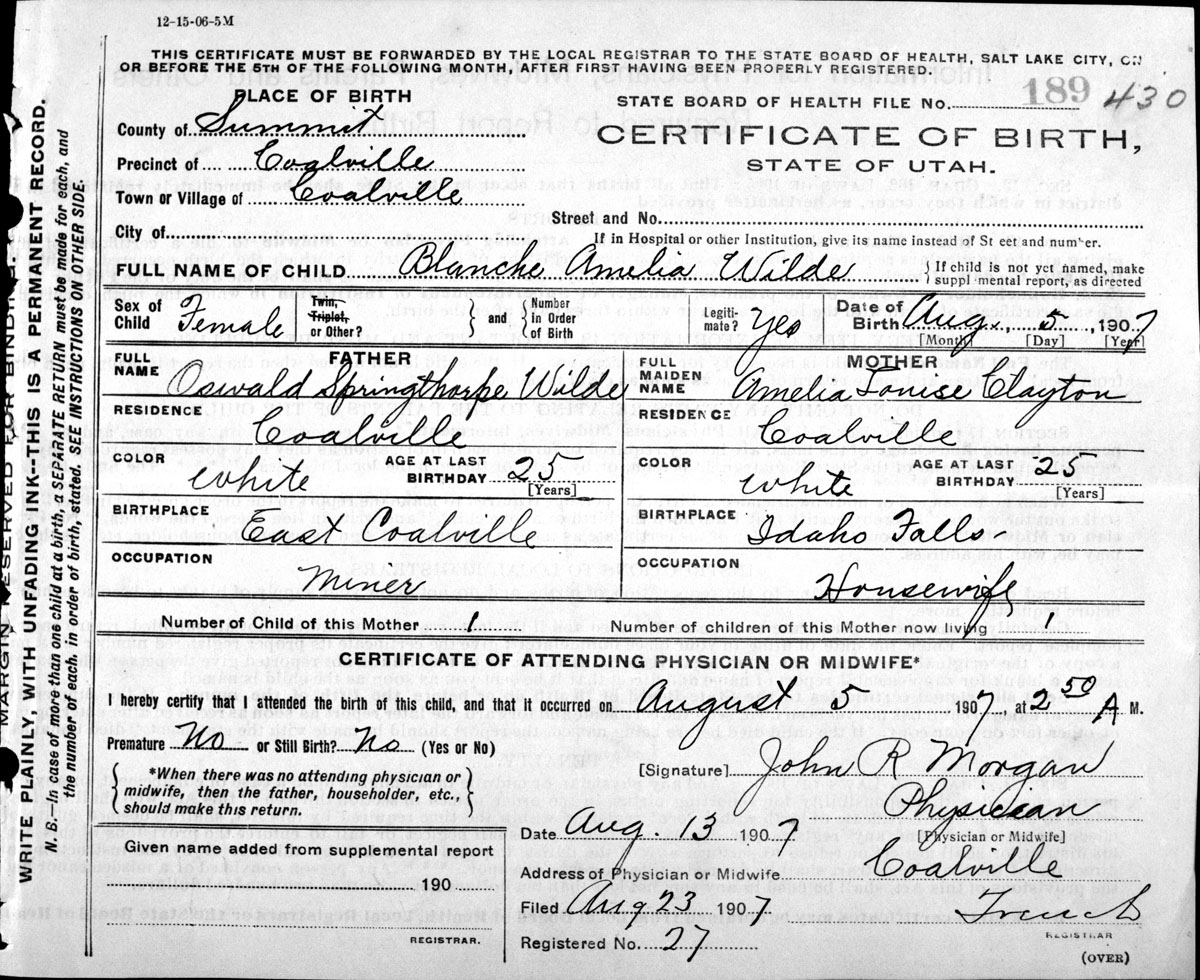 12-15-06-5M
THIS CERTIFICATE MUST BE FORWARDED BY THE LOCAL REGISTRAR TO THE STATE BOARD OF HEALTH, SALT LAKE CITY, ON
OR BEFORE THE 5TH OF THE FOLLOWING MONTH, AFTER FIRST HAVING BEEN PROPERLY REGISTERED.
PLACE OF BIRTH
STATE BOARD OF HEALTH FILE No. 189 430
County of Summit
CERTIFICATE OF BIRTH,
STATE OF UTAH.
Precinct of Coalville
Town or Village of Coalville
Street and No.
City of
If in Hospital or other Institution, give its name instead of St eet and number.
FULL NAME OF CHILD Blanche Amelia Wilde } If child is not yet named, make
suppl mental report, as directed
Sex of Child Female
Twin, Triplet, or Other? } and { Number in Order of Birth
Legiti-mate? Yes
Date of Birth Aug., 5, 1907
[Month] [Day] [Year]
FATHER
FULL NAME Oswald Springthorpe Wilde
MOTHER
FULL MAIDEN NAME Amelia Louise Clayton
RESIDENCE Coalville
RESIDENCE Coalville
COLOR White AGE AT LAST BIRTHDAY 25 [Years]
COLOR White AGE AT LAST BIRTHDAY 25 [Years]
BIRTHPLACE East Coalville
BIRTHPLACE Idaho Falls
OCCUPATION Miner
OCCUPATION Housewife
Number of Child of this Mother 1
Number of children of this Mother now living 1
CERTIFICATE OF ATTENDING PHYSICIAN OR MIDWIFE*
I hereby certify that I attended the birth of this child, and that it occurred on August 5 1907, at 2 50 A M.
Premature No or Still Birth? No (Yes or No)
[Signature] John R Morgan
{ *When there was no attending physician or
midwife, then the father, householder, etc.,
should make this return. }
Physician
[Physician or Midwife]
Date Aug. 13 1907
Given name added from supplemental report
190
Address of Physician or Midwife Coalville
Filed Aug 23 1907
REGISTRAR.
REGISTRAR
Registered No. 27
(OVER)
MARGIN RESERVED FOR BINDING
WRITE PLAINLY, WITH UNFADING INK--THIS IS A PERMANENT RECORD.
N. B.—In case of more than one child at a birth, a SEPARATE RETURN must be made for each, and
the number of each, in order of birth, stated. SEE INSTRUCTIONS ON OTHER SIDE.